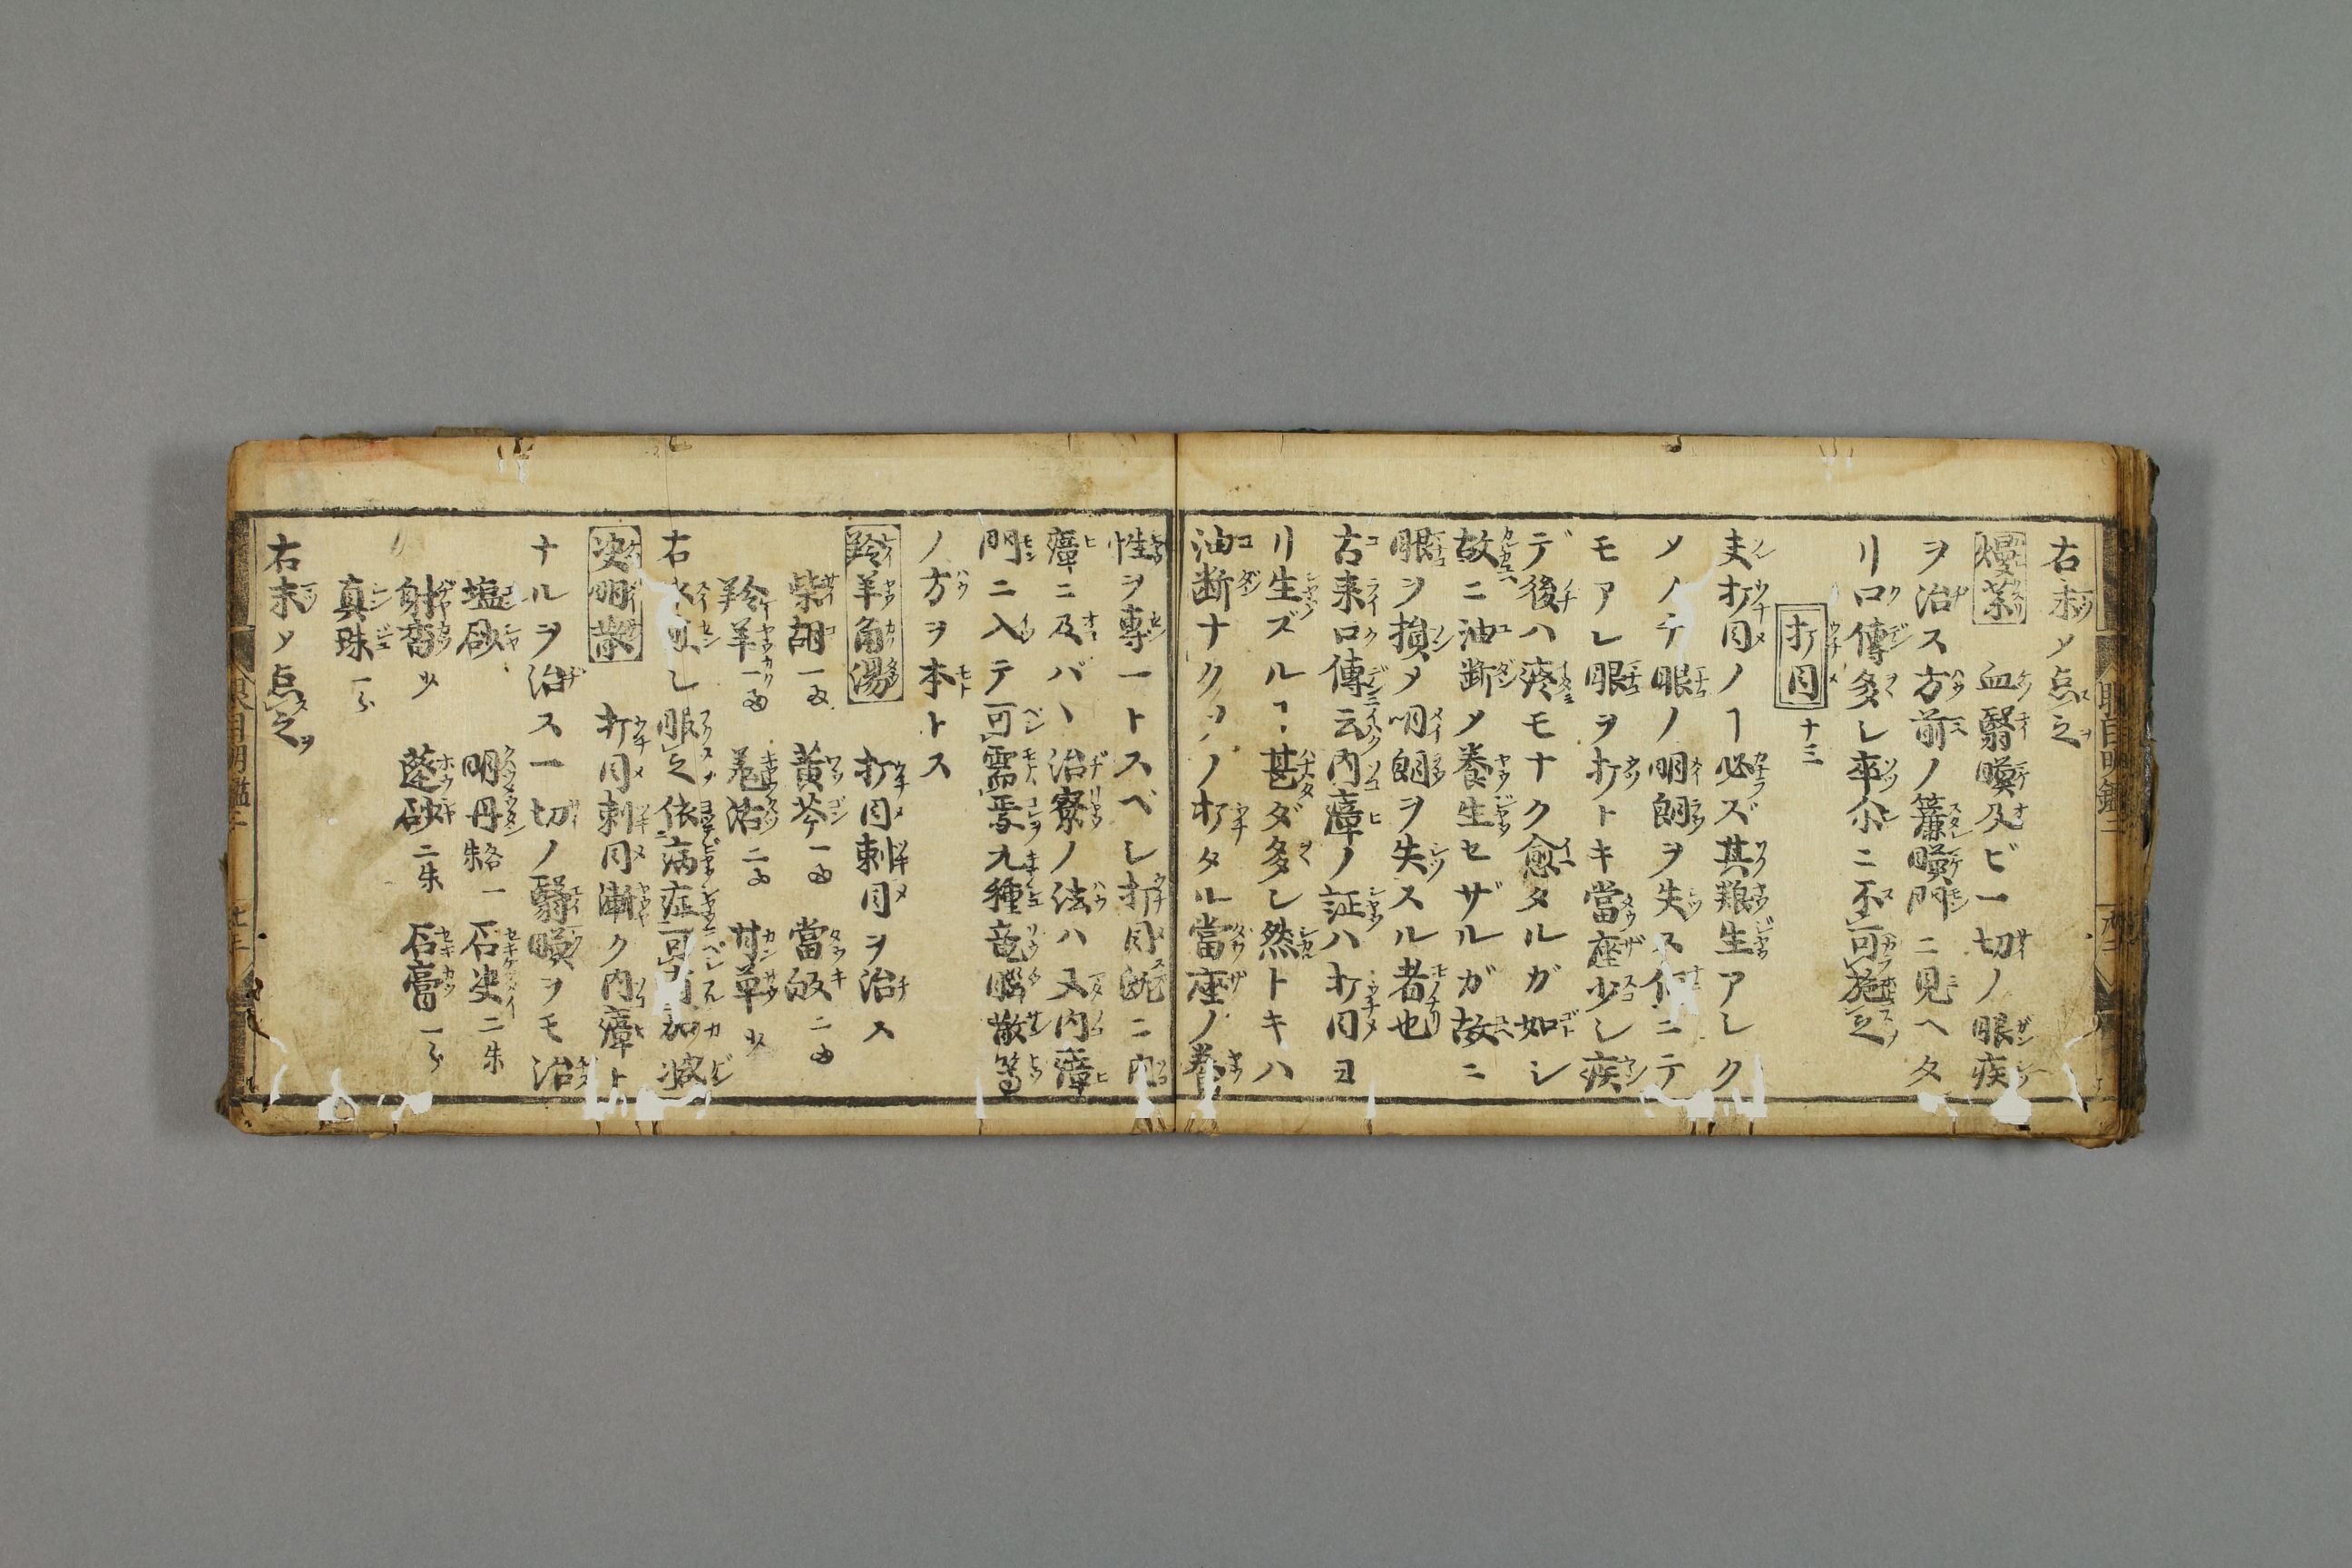 右末メ点之
熳薬 血翳暎及ビ一切ノ眼疾
ヲ治ス方前ノ簾暎門ニ見ヘタ
リ口傳多シ卒尒ニ不可施之
打目 十三
夫打目ノヿ必ズ其粮生アシク
メノテ眼ノ明朗ヲ失ス何ニテ
モアレ眼ヲ打トキ當座少シ疾
デ後ハ疼モナク愈タルガ如シ
故ニ油断メ養生セザルガ故ニ
眼ヲ損メ明朗ヲ失スル者也
古来口傳云内瘴ノ証ハ打目ヨ
リ生ズルヿ甚ダ多シ然トキハ
油断ナクソノ打タル當座ノ養
性ヲ専一トスベシ打目既ニ内
瘴ニ及バヽ治療ノ法ハ又内瘴
門ニ入テ可需焉九種竜脳散等
ノ方ヲ本トス
羚羊角湯 打目刺目ヲ治ス
柴胡一匁 黄芩一匁 當皈二匁
羚羊一匁 羗活二匁 甘草少
右水煎シ服之依病症可有加减
决明散 打目刺目漸ク内瘴ト
ナルヲ治ス一切ノ翳暎ヲモ治
塩砂 明丹 一 石决二朱
射香少 蓬砂二朱 石膏一分
真珠一分
右末メ点之